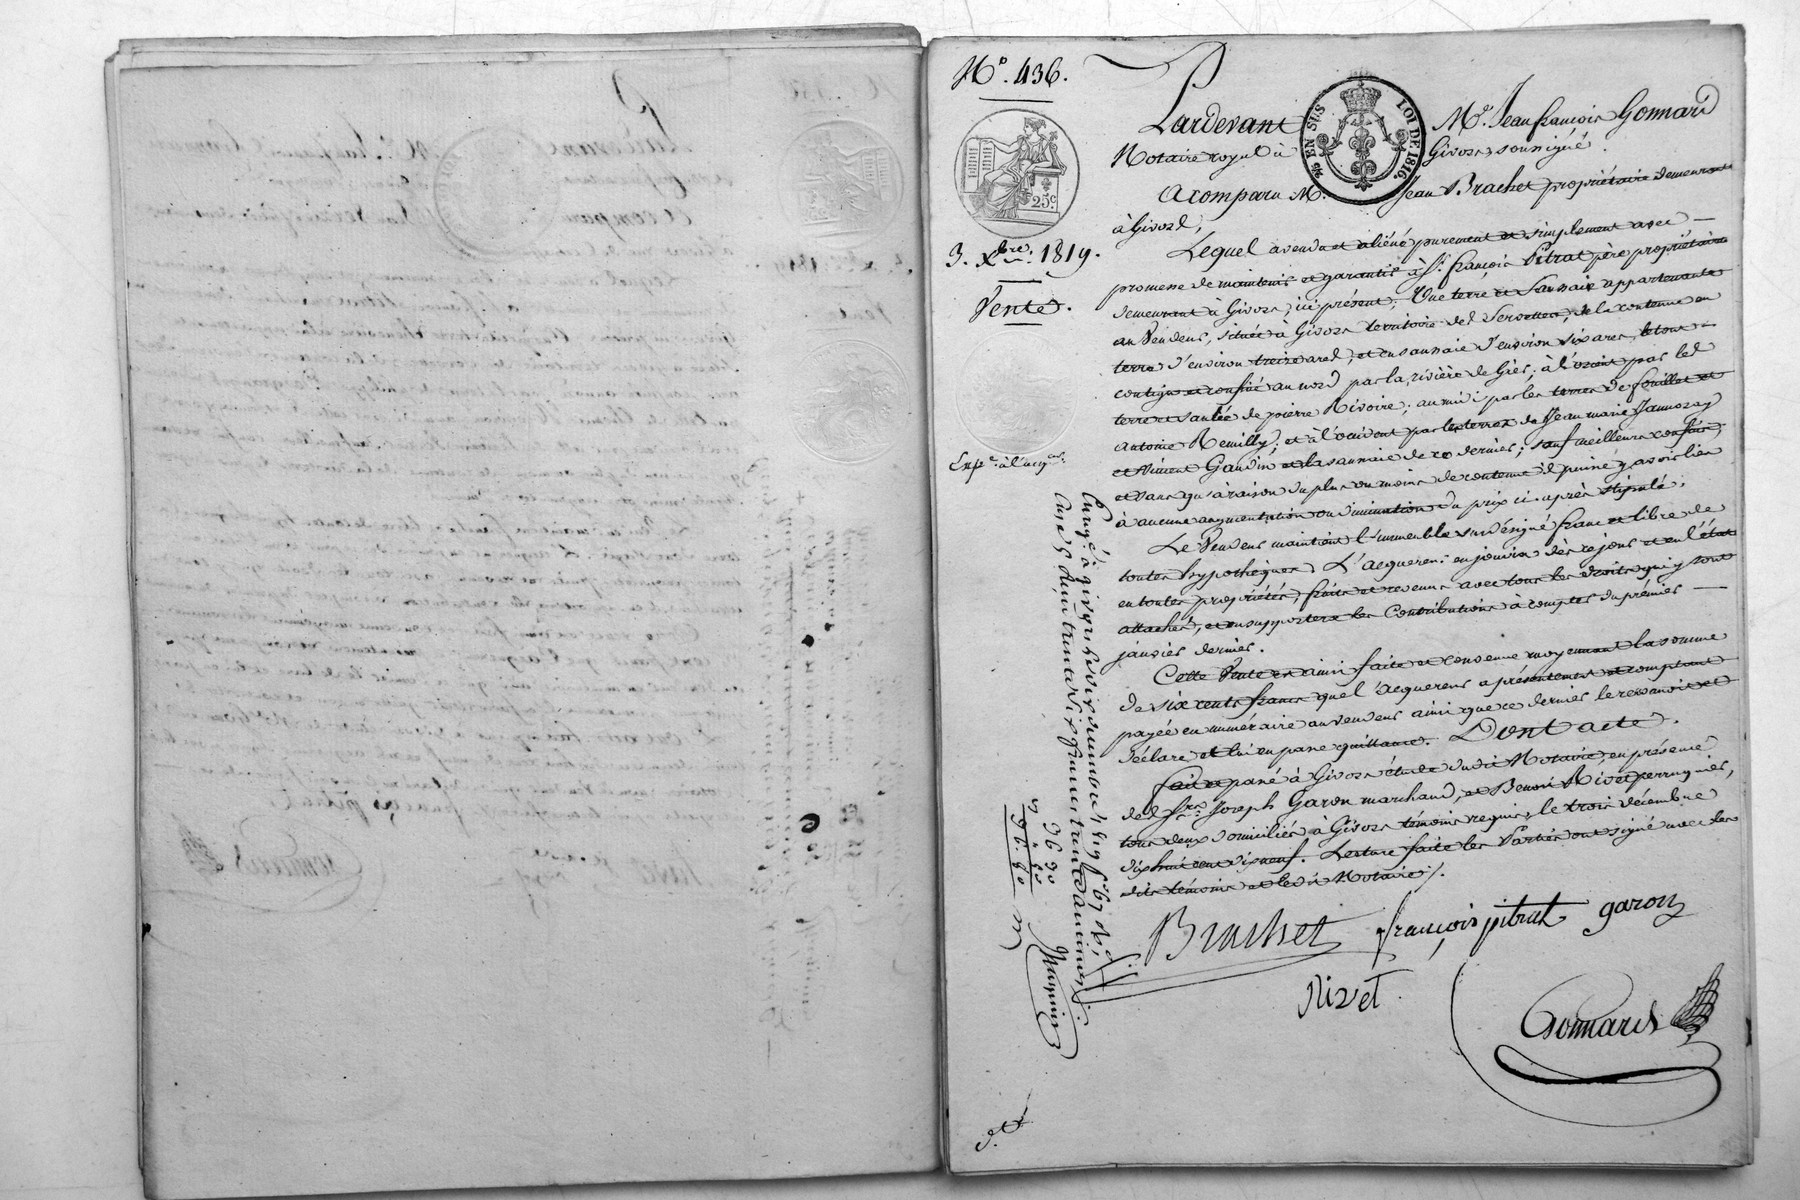 N.° 436.
25.c
3. Xbre. 1819.
Vente.
Exp.on à l'acq.r
EN SUS LOI DE 1816.
Pardevant M.e Jean François Gonnard
Notaire royal à Givors, soussigné.
A comparu M. Jean Brachet propriétaire demeurant
à Givors,
Lequel a vendu et aliéné purement et simplement avec
promesse de maintenir et garantir à S.r François Pitrat père propriétaire
demeurant à Givors, ici présent, Une terre et Saunaie appartenante
au Vendeur, située à Givors territoire des de la contenue en
terre d'environ treize ares, et en saunaie d'environ six ares, le tout
contigu et confiné au nord par la rivière de Gier, à l'orient par les
terre et saulée de pierre Rivoire; au midi par les terres de fouillet et
antoine Remilly; et à l'occident par les terres de Jean marie Jannozay
et Vincent Gaudin et la saunaie de ce dernier; sauf meilleurs confins,
et sans qu'à raison du plus ou moins de contenue il puisse y avoir lieu
à aucune augmentation ou diminution du prix ci-après stipulé.
Le Vendeur maintient l'immeuble sus désigné franc et libre de
toutes hypothèques. L'acquéreur en jouira dès ce jour et en l'état
en toutes propriétés, fruits et revenus avec tous les droits qui y sont
attachés, et en supportera les Contributions à compter du premier
janvier dernier.
Cette Vente est ainsi faite et convenue moyennant la somme
de six cents francs que l'acquéreur a présentement et comptant
payée en numéraire au vendeur ainsi que ce dernier le reconnoit et
déclare et lui en passe quittance. Dont acte.
Fait et passé à Givors étude dudit Notaire, en présence
des S.rs Joseph Garon marchand, et Benoit Rivet perruquier,
tous deux domiciliés à Givors témoins requis, le trois décembre
dix huit cent dix neuf. Lecture faite les Parties ont signé avec les
dits témoins et ledit Notaire /.
Brachet françois pitrat garon
Rivet
Gonnard
Enreg.é à givors le dix décembre 1819 f.° 67
trente six francs trente centimes
36 30